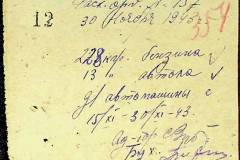 Расх. орд. № 157
30 Ноября 1943
12
354
228 кгр. бензина
13 " автола
дл автомашины с
15/XI - 30/XI - 43.
Бух.